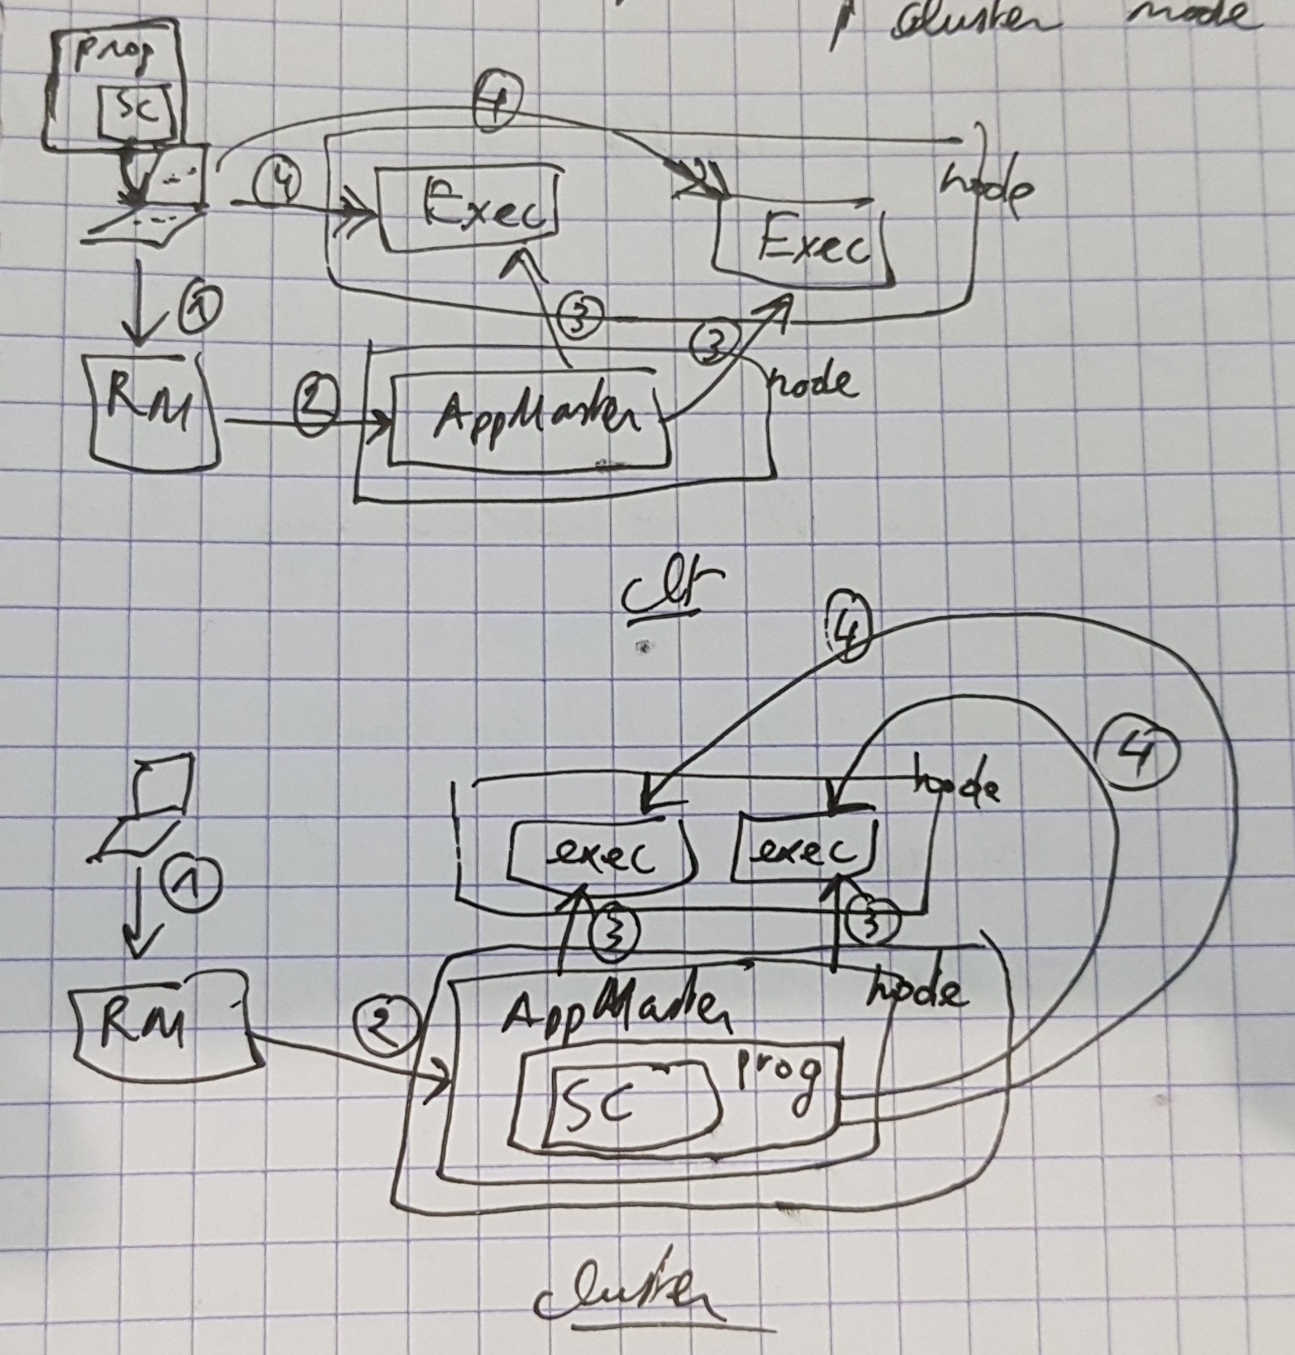 cluster mode
prog
SC
4
4
Exec
Exec
node
1
3
3
RM
2
AppMaster
node
clt
4
4
node
exec
exec
1
3
3
RM
2
AppMaster
node
SC
prog
cluster